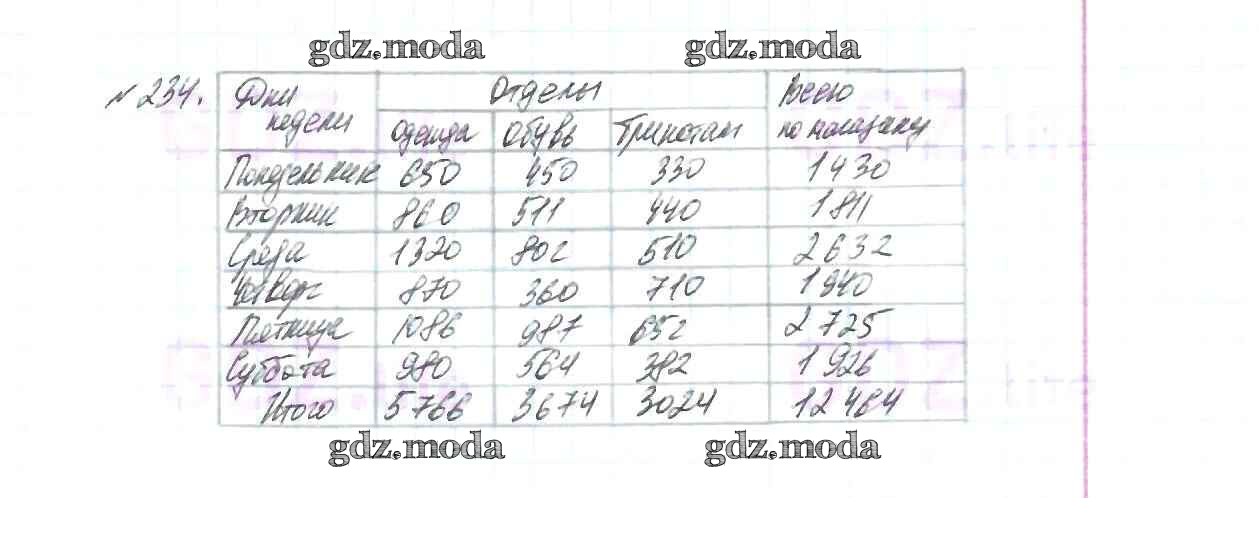 gdz.moda gdz.moda
№234. Дни недели Отделы Всего по магазину
одежда обувь Трикотаж
Понедельник 650 450 330 1430
Вторник 860 511 440 1811
Среда 1320 802 510 2632
Четверг 870 360 710 1940
Пятница 1086 987 652 2725
Суббота 980 564 382 1926
Итого 5766 3674 3024 12464
gdz.moda gdz.moda